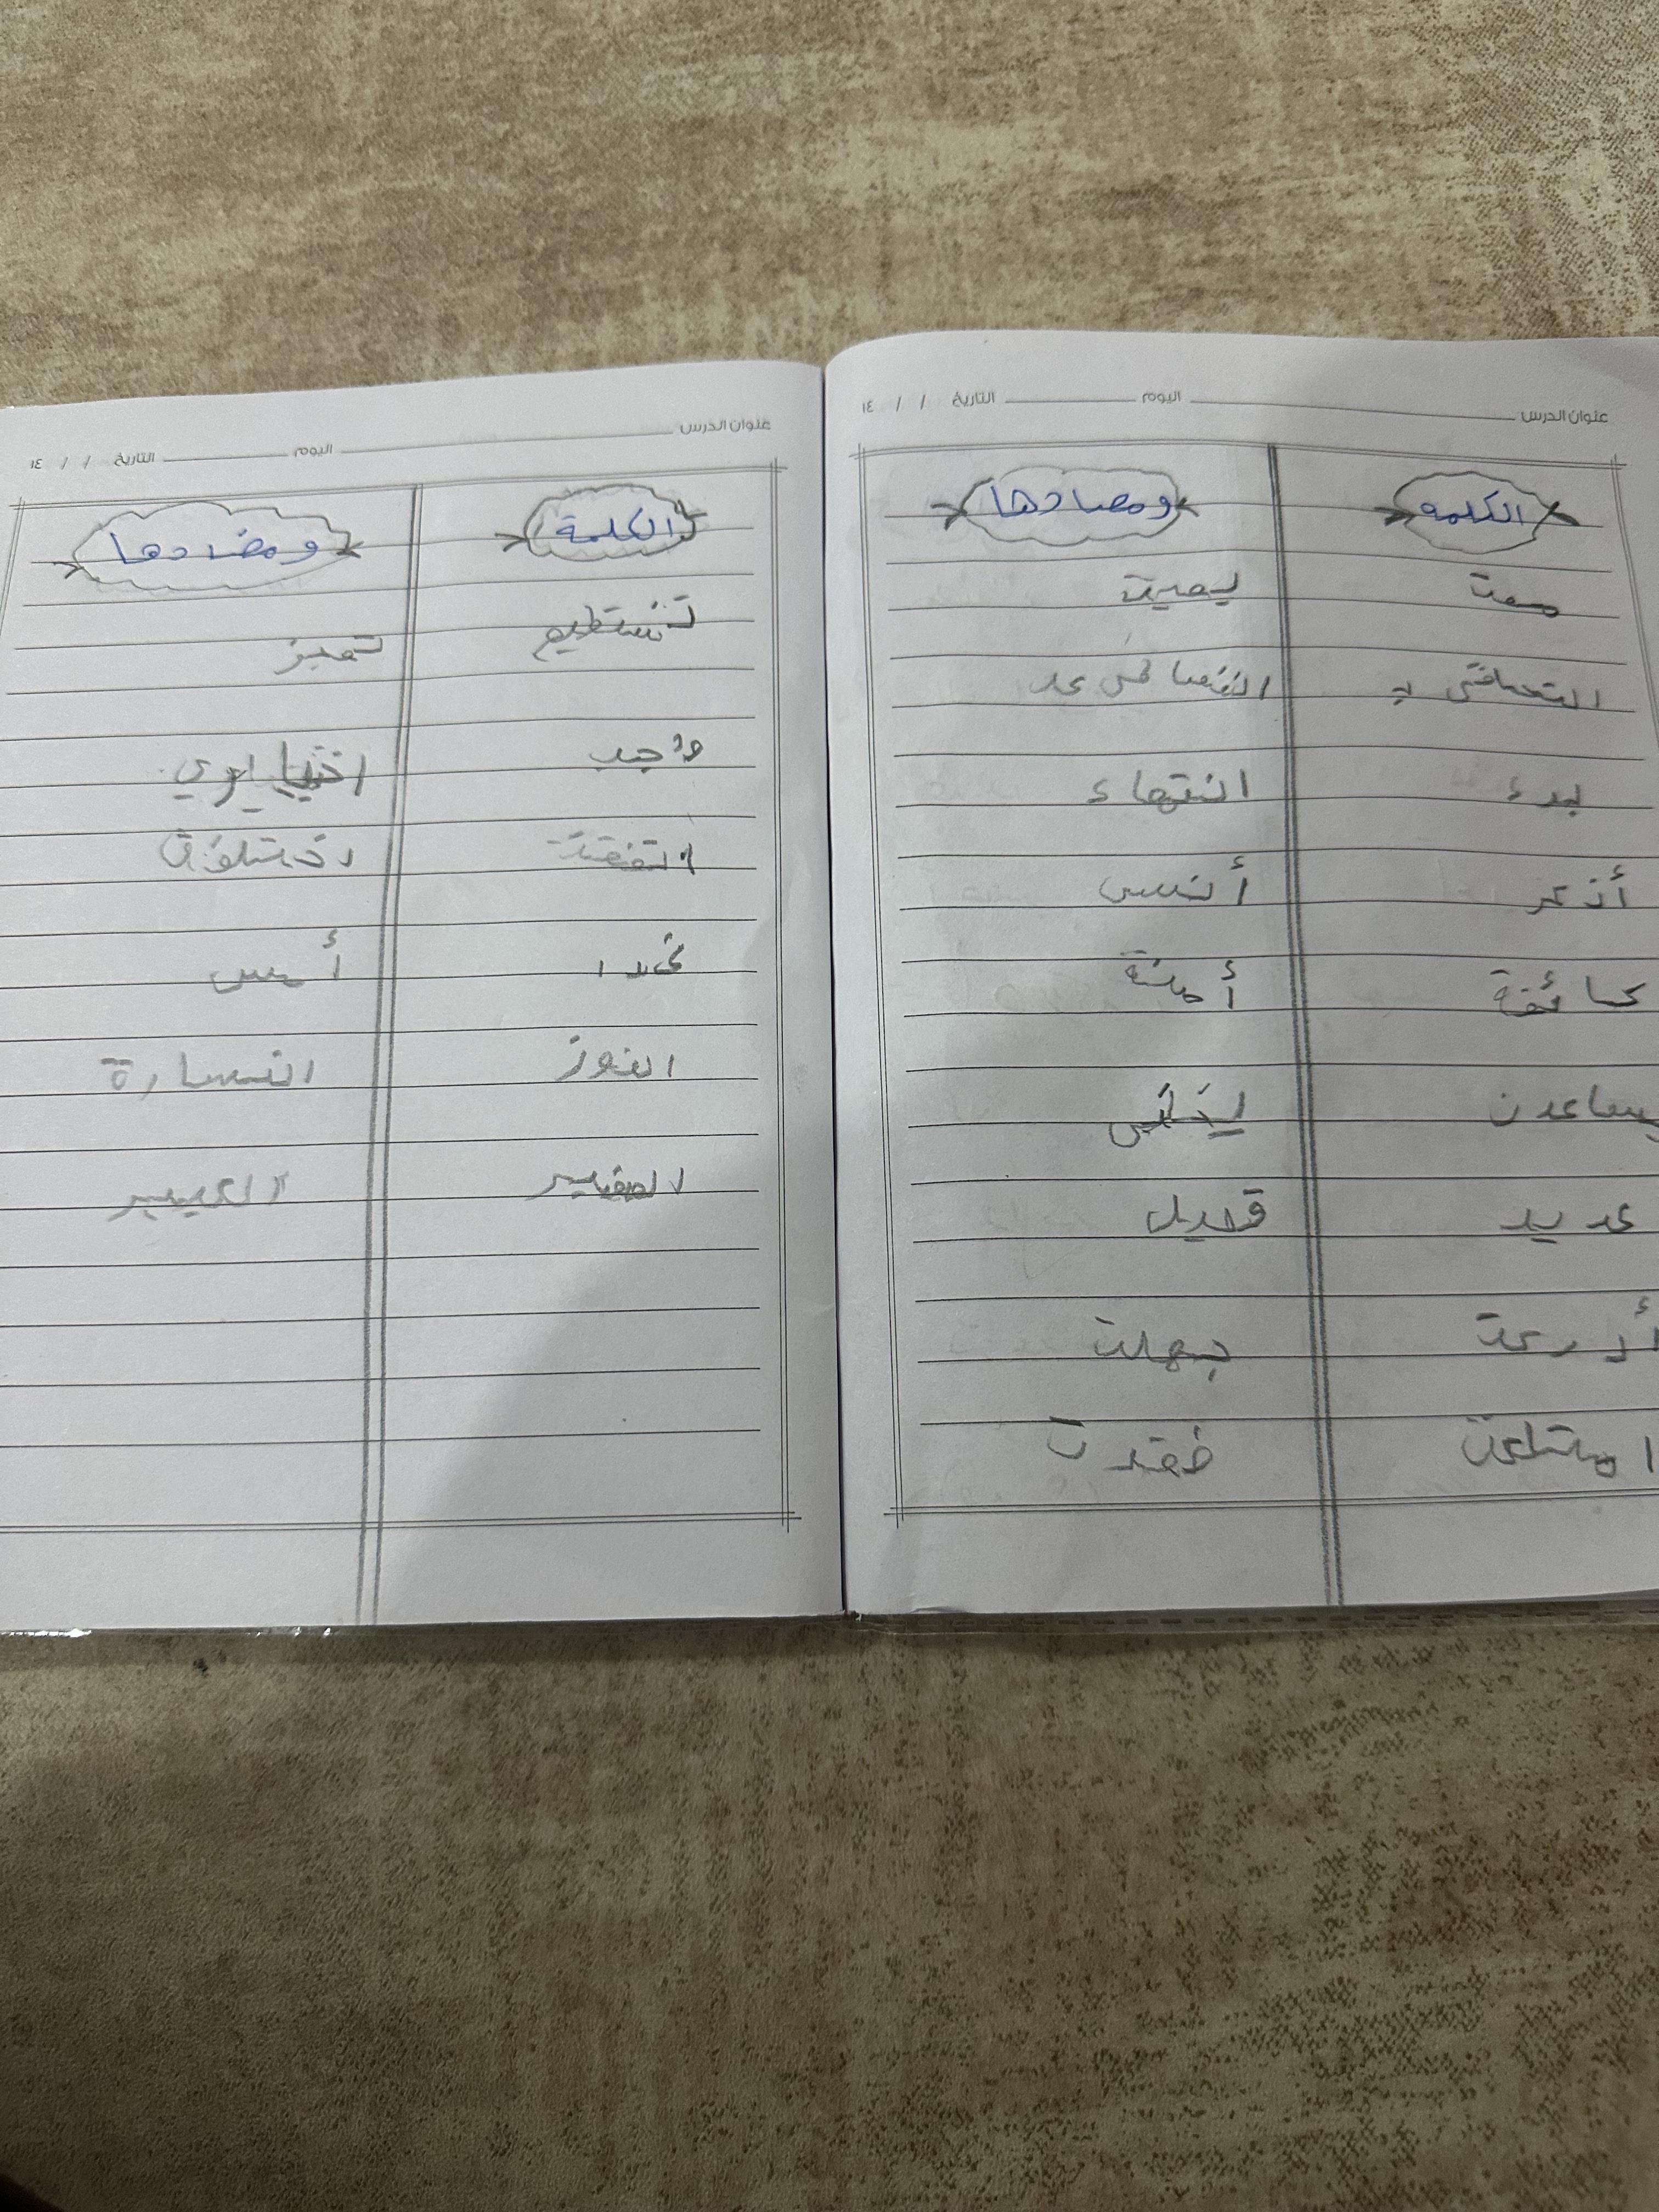 عنوان الدرس اليوم التاريخ / / ١٤
الكلمه ومضادها
صمت
التصافي ب
بدء انتهاء
أذكر أنسى
خائفة أمنة
يساعدن يخذلن
عديد قليل
أدركت جهلت
امتلكت فقدت
عنوان الدرس اليوم التاريخ / / ١٤
الكلمة ومضادها
تستطيع تعجز
واجب اختياري
اتفقت اختلفت
غدا أمس
الفوز الخسارة
الصغير الكبير